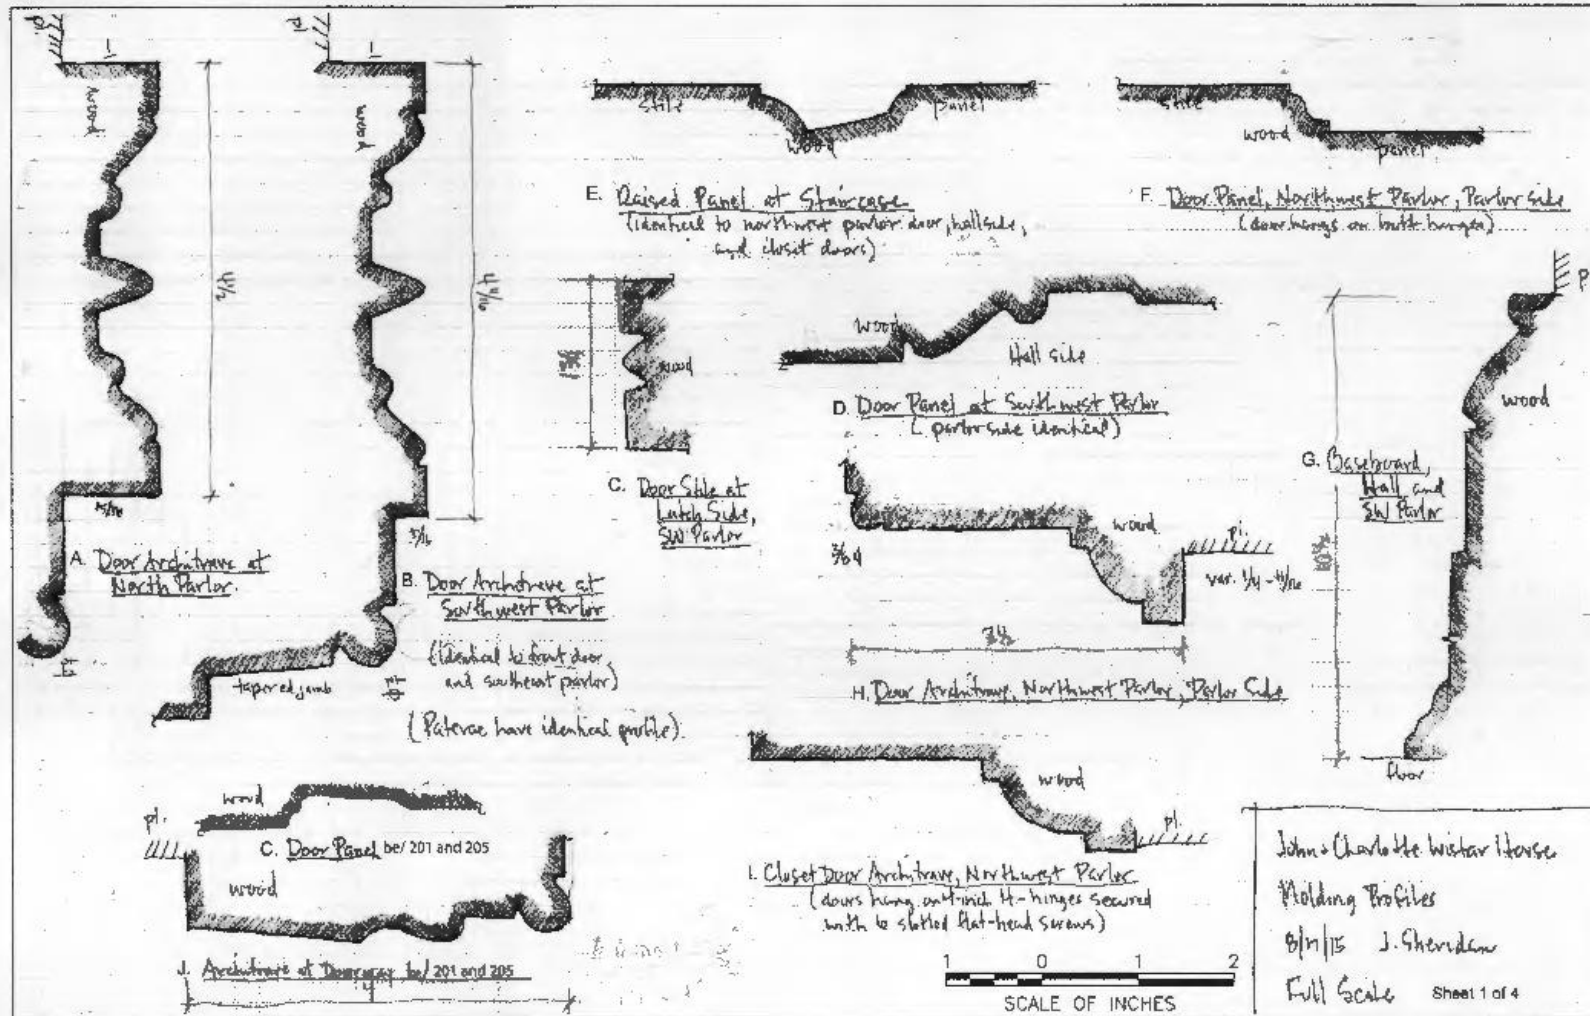 pl.
pl.
1
1
wood
wood
4 1/2
4 11/16
15/16
5/16
A. Door Architrave at
North Parlor.
B. Door Architrave at
Southwest Parlor
(Identical to front door,
and southeast parlor)
(Paterae have identical profile).
tapered jamb
Stile
panel
wood
E. Raised Panel at Staircase
(identical to northwest parlor door, hallside,
and closet doors)
Stile
wood
panel
F. Door Panel, Northwest Parlor, Parlor side
(door hangs on butt hinges)
wood
C. Door Stile at
Latch Side,
SW Parlor
wood
Hall side
D. Door Panel at Southwest Parlor
(parlor side identical)
wood
G. Baseboard,
Hall and
SW Parlor
floor
wood
pl.
var. 1/4 - 11/16
3 1/2
H. Door Architrave, Northwest Parlor, Parlor Side
wood
pl.
I. Closet Door Architrave, Northwest Parlor
(doors hang on 4-inch H-hinges secured
with 6 slotted flat-head screws)
wood
pl.
C. Door Panel be/ 201 and 205
wood
J. Architrave at Doorway be/ 201 and 205
4
1 0 1 2
SCALE OF INCHES
John & Charlotte Wistar House
Molding Profiles
8/11/15 J. Sheridan
Full Scale Sheet 1 of 4